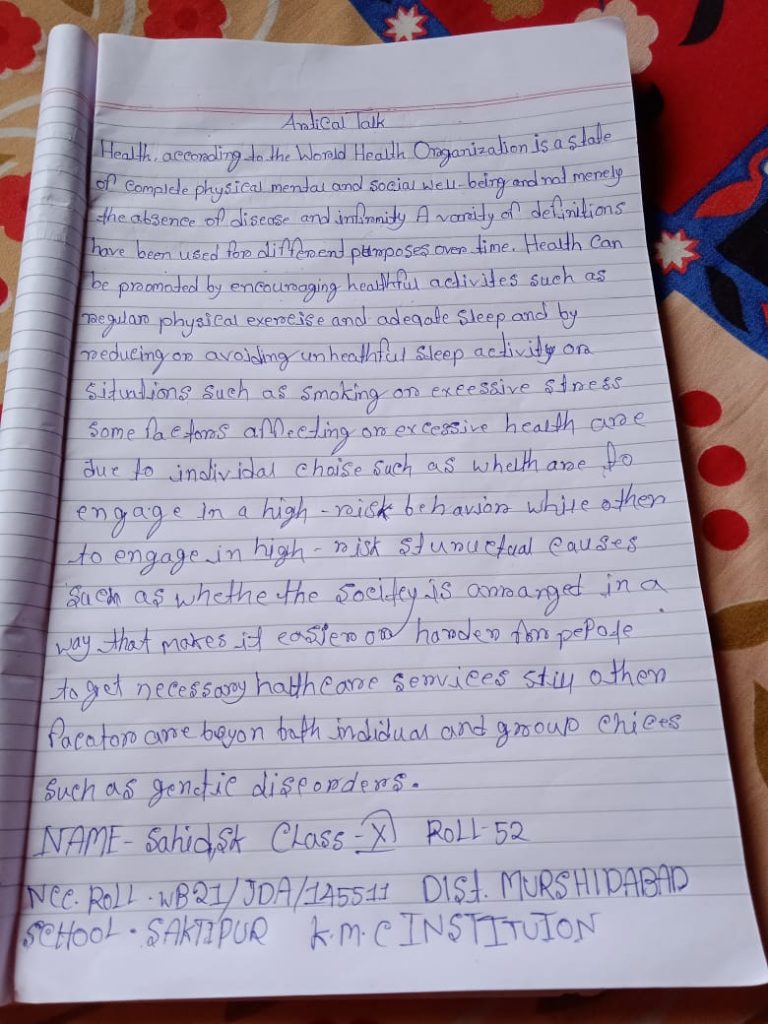 Artical Talk
Health, according to the World Health Organization is a state
of complete physical mental and social well-being and not merely
the absence of disease and infirmity A varity of definitions
have been used for different purposes over time. Health can
be promated by encouraging healthful activites such as
regular physical exercise and adegate sleep and by
reducing or avoiding unhealthful sleep activity or
situations such as smoking or excessive stress
some factors affecting or excessive health are
due to individal choise such as whelth are to
engage in a high-risk behavior while other
to engage in high-risk structual causes
such as whethe the socitey is arranget in a
way that makes it easier or harder for pepole
to get necessary halthcare services still other
facator are beyon bath indidual and group chices
such as genetic diseorders.
NAME- Sahid, Sk Class - X ROLL-52
NCC. ROLL. WB21/JDA/145511 DIST. MURSHIDABAD
SCHOOL. SAKTIPUR K.M.C INSTITUION